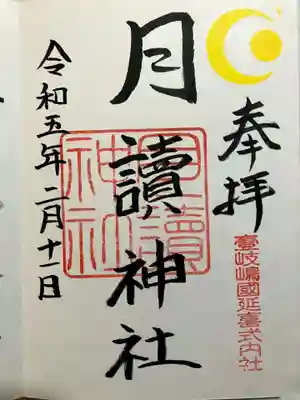 奉拝
壹岐嶋國延喜式内社
月讀神社
月讀
神社
令和五年二月十一日